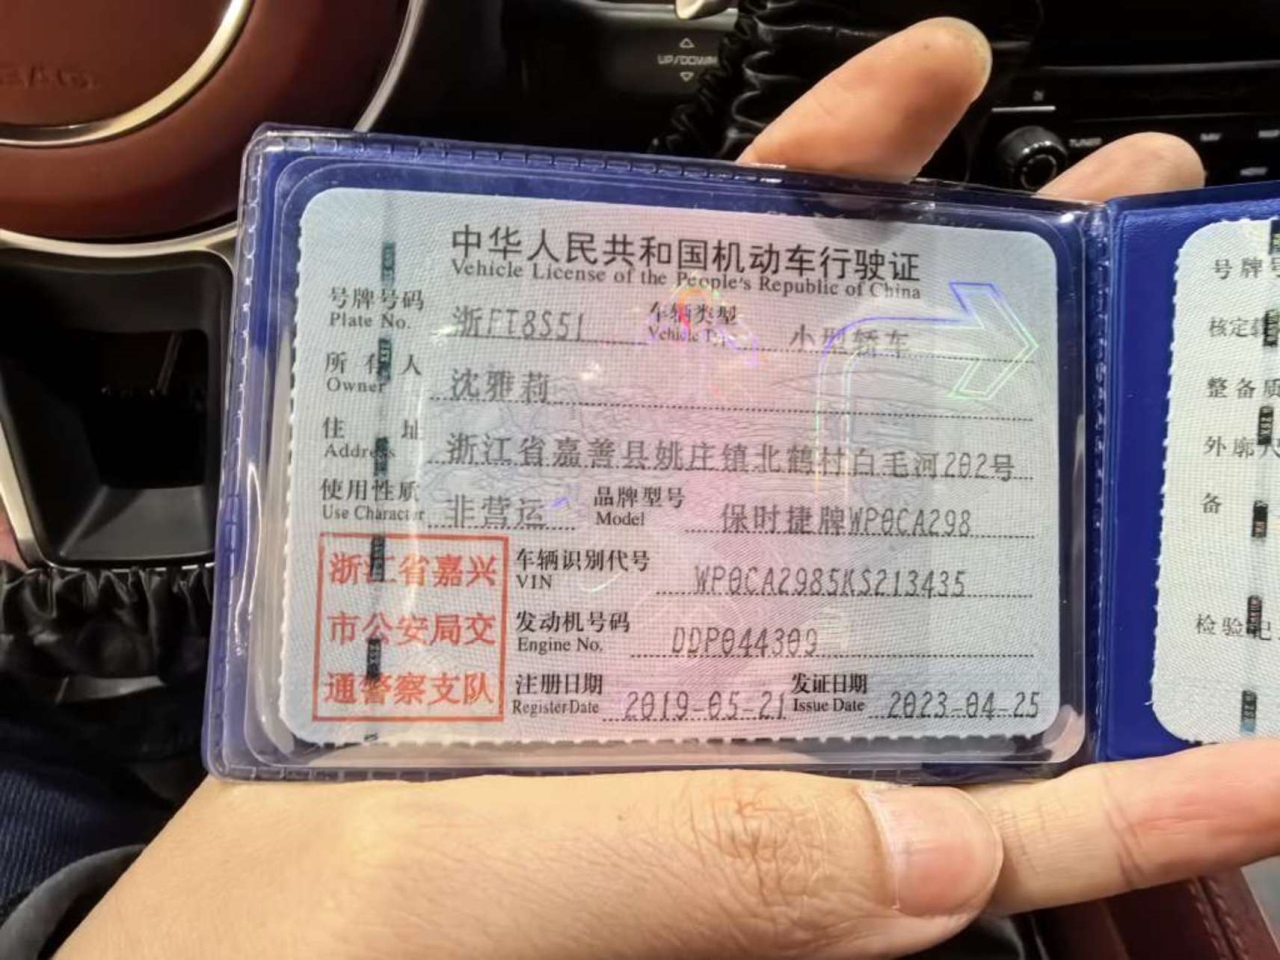 UP/DOWN
中华人民共和国机动车行驶证
Vehicle License of the People's Republic of China
号牌号码 浙FT8S51 车辆类型 小型轿车
Plate No. Vehicle
所有人 沈雅莉
Owner
住址 浙江省嘉善县姚庄镇北鹤村白毛河202号
Address
使用性质 非营运 品牌型号 保时捷牌WP0CA298
Use Character Model
浙江省嘉兴
市公安局交
通警察支队
车辆识别代号 WP0CA2985KS213435
VIN
发动机号码 DDP044309
Engine No.
注册日期 2019-05-21 发证日期 2023-04-25
Register Date Issue Date
号牌号
核定载
整备质
外廓尺
备
检验记